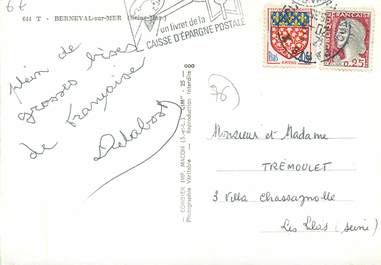 6€
644 T - BERNEVAL-sur-MER (Seine-Mar.)
un livret de la
CAISSE D'ÉPARGNE POSTALE
FRANÇAISE
0,25
plein de
grosses bises
de Françoise
Delabost
76
COMBIER IMP. MACON (S.-et-L.) "CIM"
Photographie Véritable - Reproduction Interdite
Monsieur et Madame
TRÉMOULET
3 Villa Chassagnolle
Les Lilas (Seine)